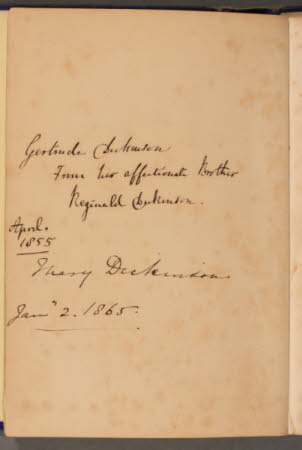 Gertrude Dickinson
From her affectionate Brother
Reginald Dickinson.
April.
1855
Mary Dickinson
Jany 2. 1865.